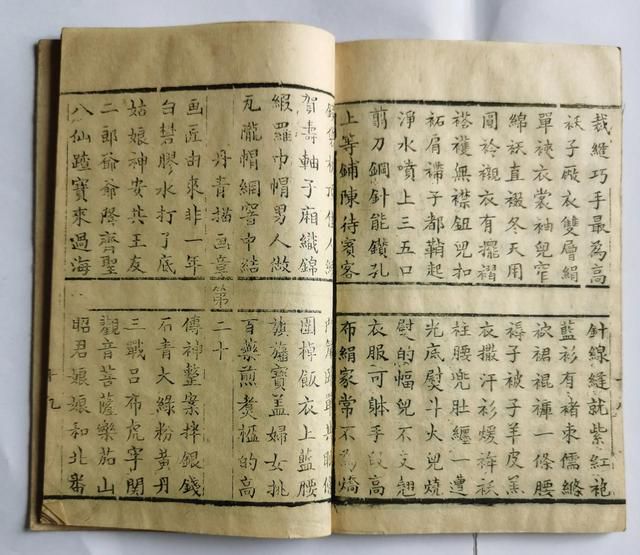 裁縫巧手最為高
針線縫就紫紅袍
袄子殿衣雙層絹
藍衫有禇束儒絛
單裌衣裳袖兜窄
裙裩褲一條腰
綿袄直裰冬天用
褥子被子羊皮羔
圓袊襯衣有擺褶
衣撒汗衫煖袄
褡無襟鈕兜扣
柱腰兜肚纏一遭
袥肩子都鞝起
光底熨斗火兜燒
淨水噴上三五口
熨的幅兜不文翹
剪刀鋼針能鑽孔
衣服可躰手段高
上等鋪陳待賓客
布絹家常不為
賀壽軸子廂織錦
圍棹飯衣上藍腰
緞羅巾帽男人做
旗旛寶盖婦女挑
瓦隴帽網中結
百藥煎煑榅的高
丹青描画章第二十
画匠由來非一年
傳神整案拌銀錢
白礬膠水打了底
石青大綠粉黃丹
姑娘神安共王友
三戰呂布虎牢関
二郎爺爺降齊聖
觀音菩薩樂茄山
八仙蹅寶來過海
昭君娘娘和北番